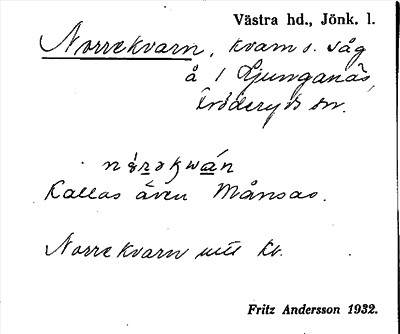 Västra hd., Jönk. l.
Norrekvarn, kvarn o. såg
å 1 Ljunganäs,
Bröderyds sn.
Kallas även Månsas.
Norrekvarn utt kv.
Fritz Andersson 1932.